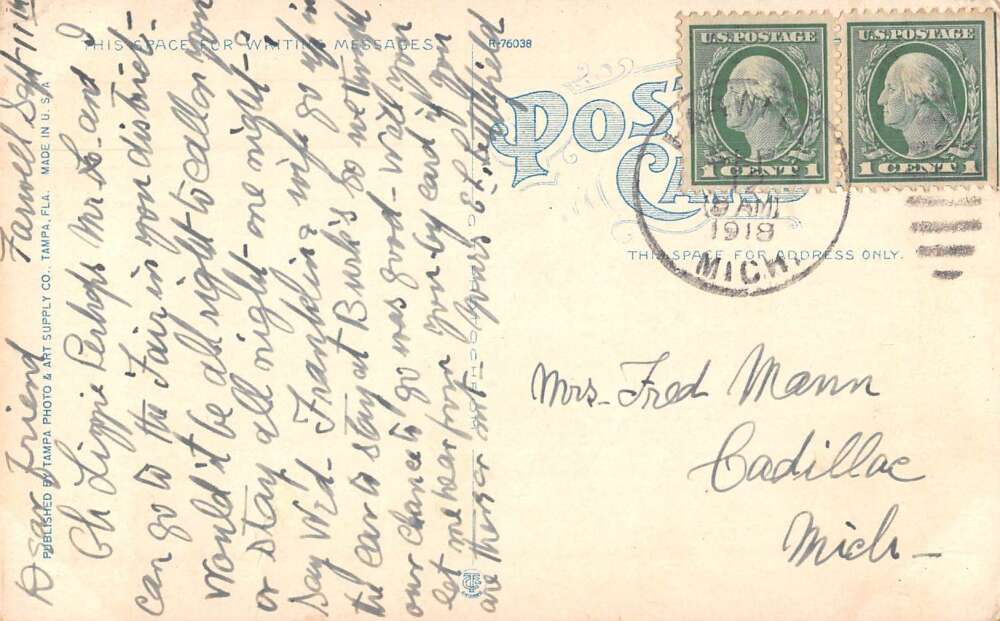 Farwell Sept 11th
Dear Friend
Oh Lizzie Perhaps Mr L. and I
can go to the Fair in your district-
Would it be all right to call on you
or stay all night - one night - ?
Say Wed- Franklin & wife go up in
the car to stay at Burk's so we thought
our chance to go was good - Will you
let me hear from you by card if you
are there or not - yours
THIS SPACE FOR WRITING MESSAGES
PUBLISHED BY TAMPA PHOTO & ART SUPPLY CO., TAMPA, FLA. MADE IN U.S.A
R-76038
POST
CARD
THIS SPACE FOR ADDRESS ONLY.
U.S. POSTAGE
1 CENT 1
U.S. POSTAGE
1 CENT 1
12
(9 AM)
1918
MICH.
Mrs- Fred Mann
Cadillac
Mich-